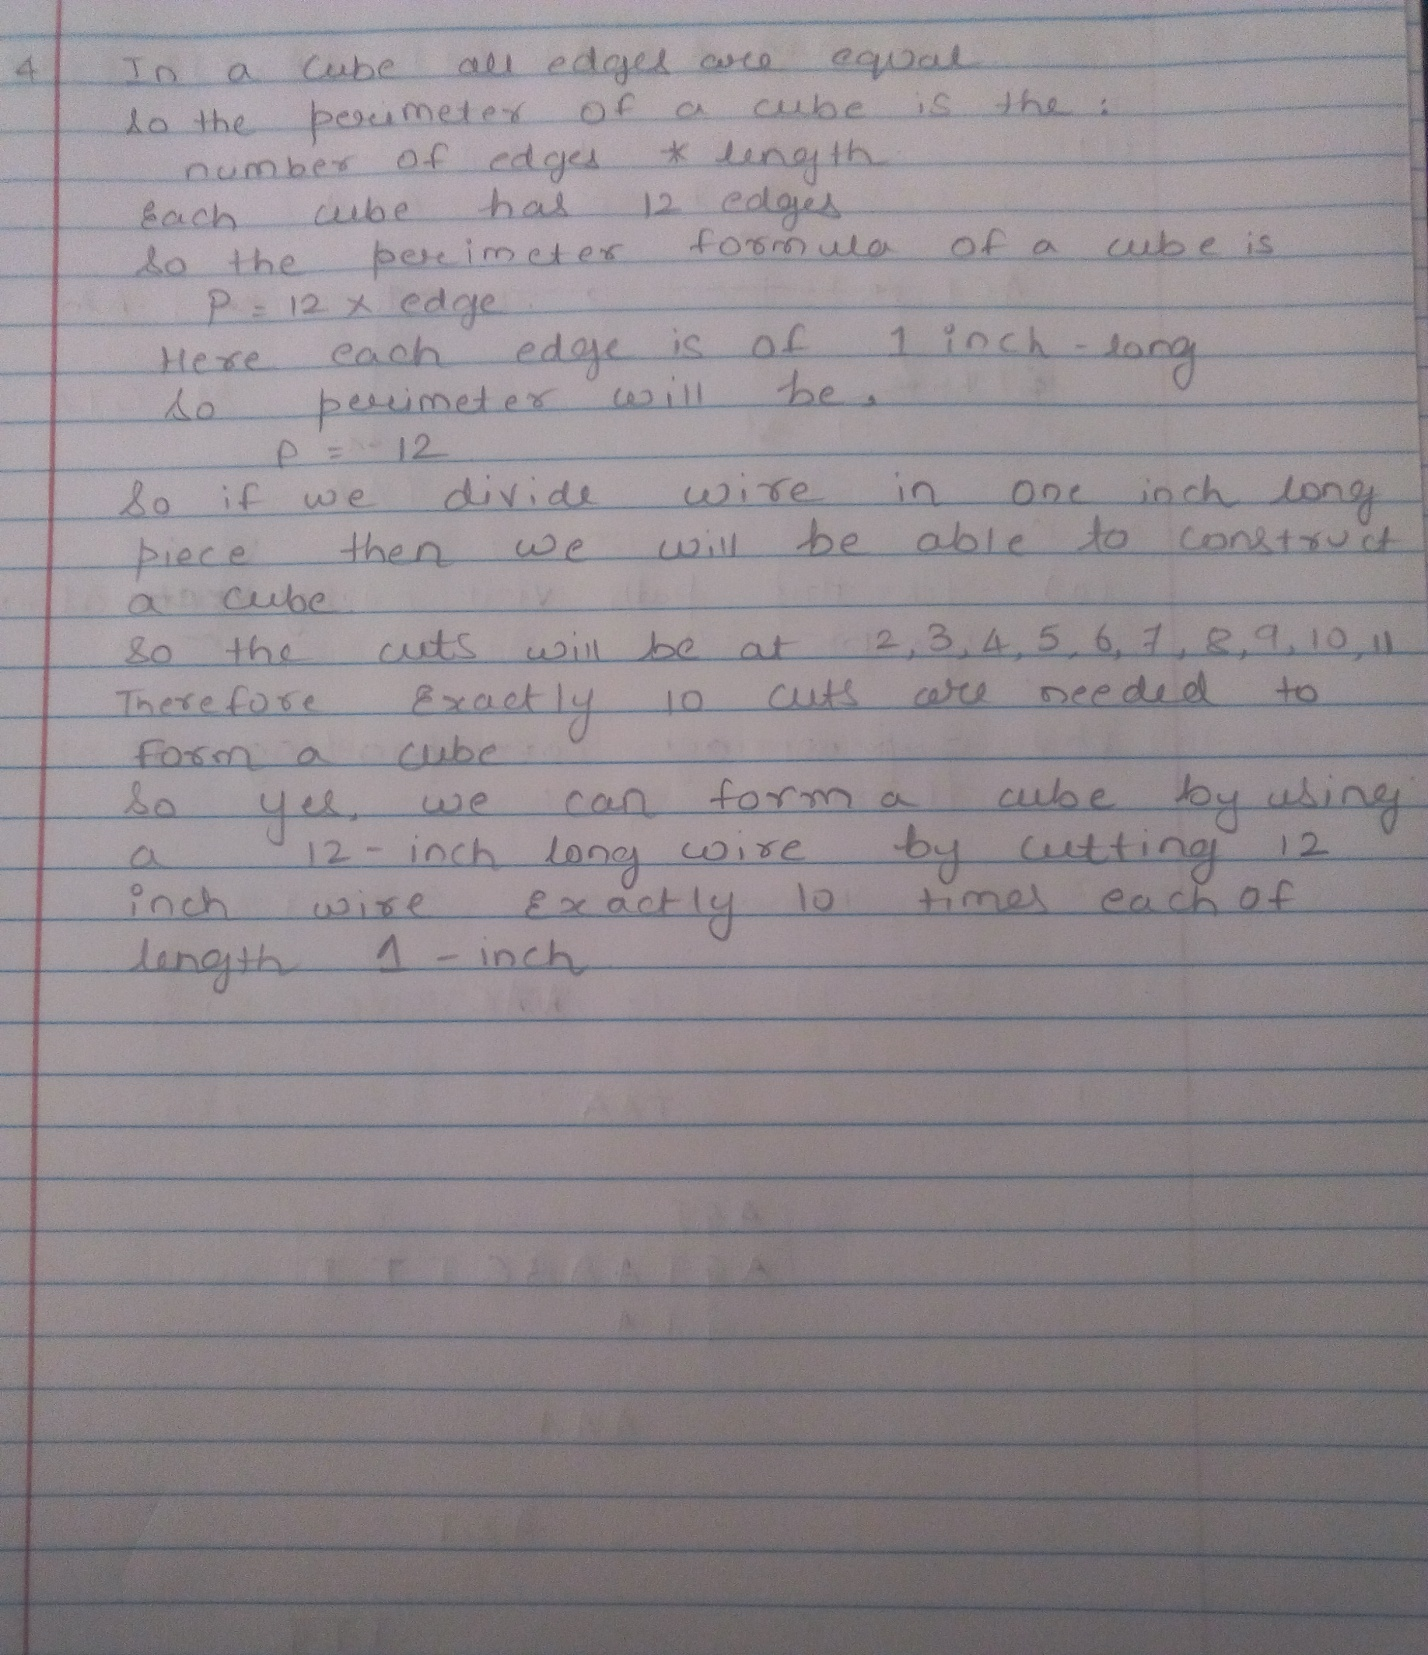 4 In a cube all edges are equal
so the perimeter of a cube is the :
number of edges * length
Each cube has 12 edges
so the perimeter formula of a cube is
P = 12 x edge
Here each edge is of 1 inch - long
so perimeter will be,
P = 12
So if we divide wire in one inch long
piece then we will be able to construct
a cube
so the cuts will be at 2, 3, 4, 5, 6, 7, 8, 9, 10, 11
Therefore Exactly 10 cuts are needed to
form a cube
So yes, we can form a cube by using
a 12 - inch long wire by cutting 12
inch wire Exactly 10 times each of
length 1 - inch